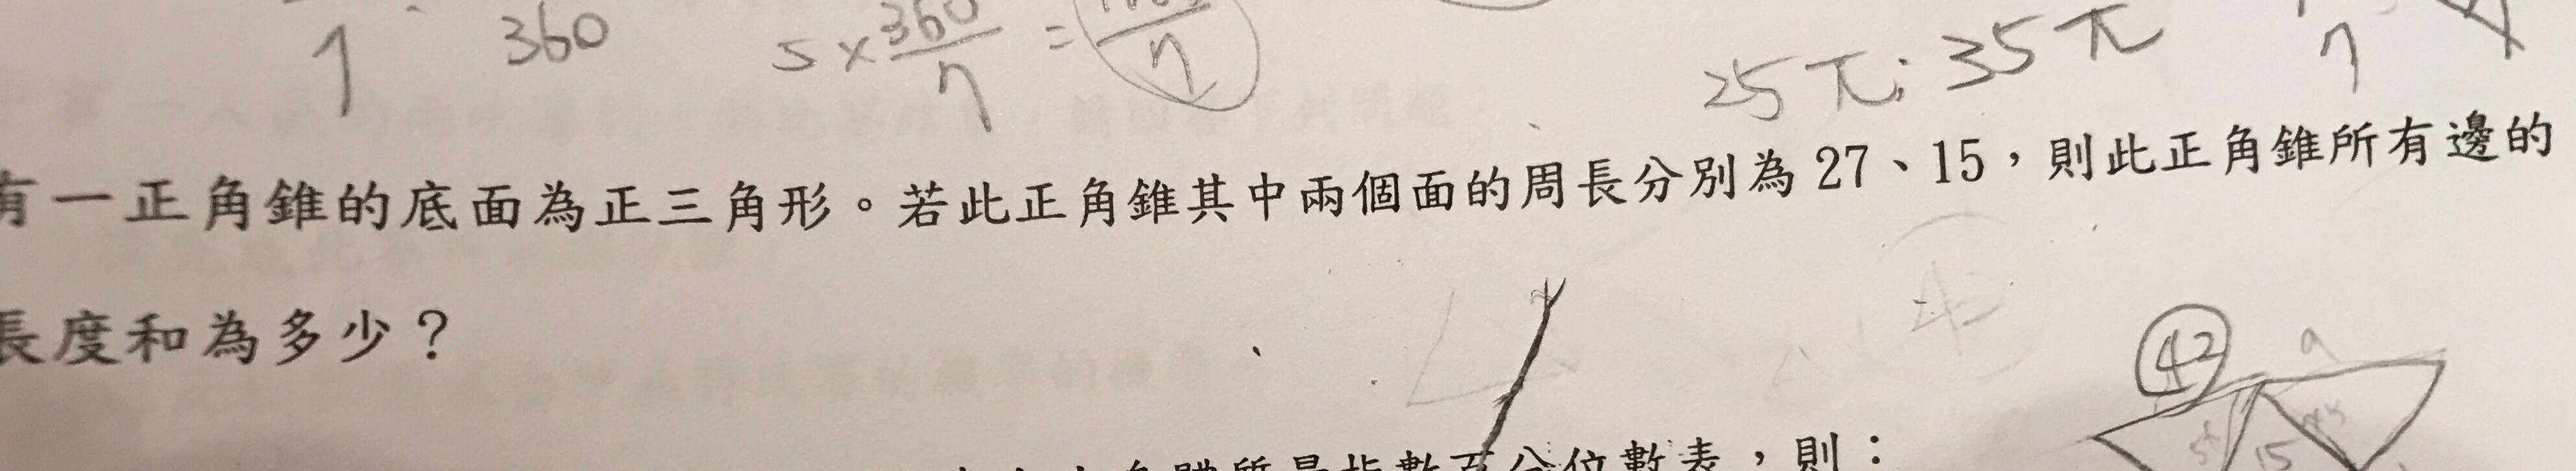 1 360 5×360/n = n 25π; 35π n
有一正角錐的底面為正三角形。若此正角錐其中兩個面的周長分別為 27、15，則此正角錐所有邊的
長度和為多少？
42 a
15
數百分位數表，則：